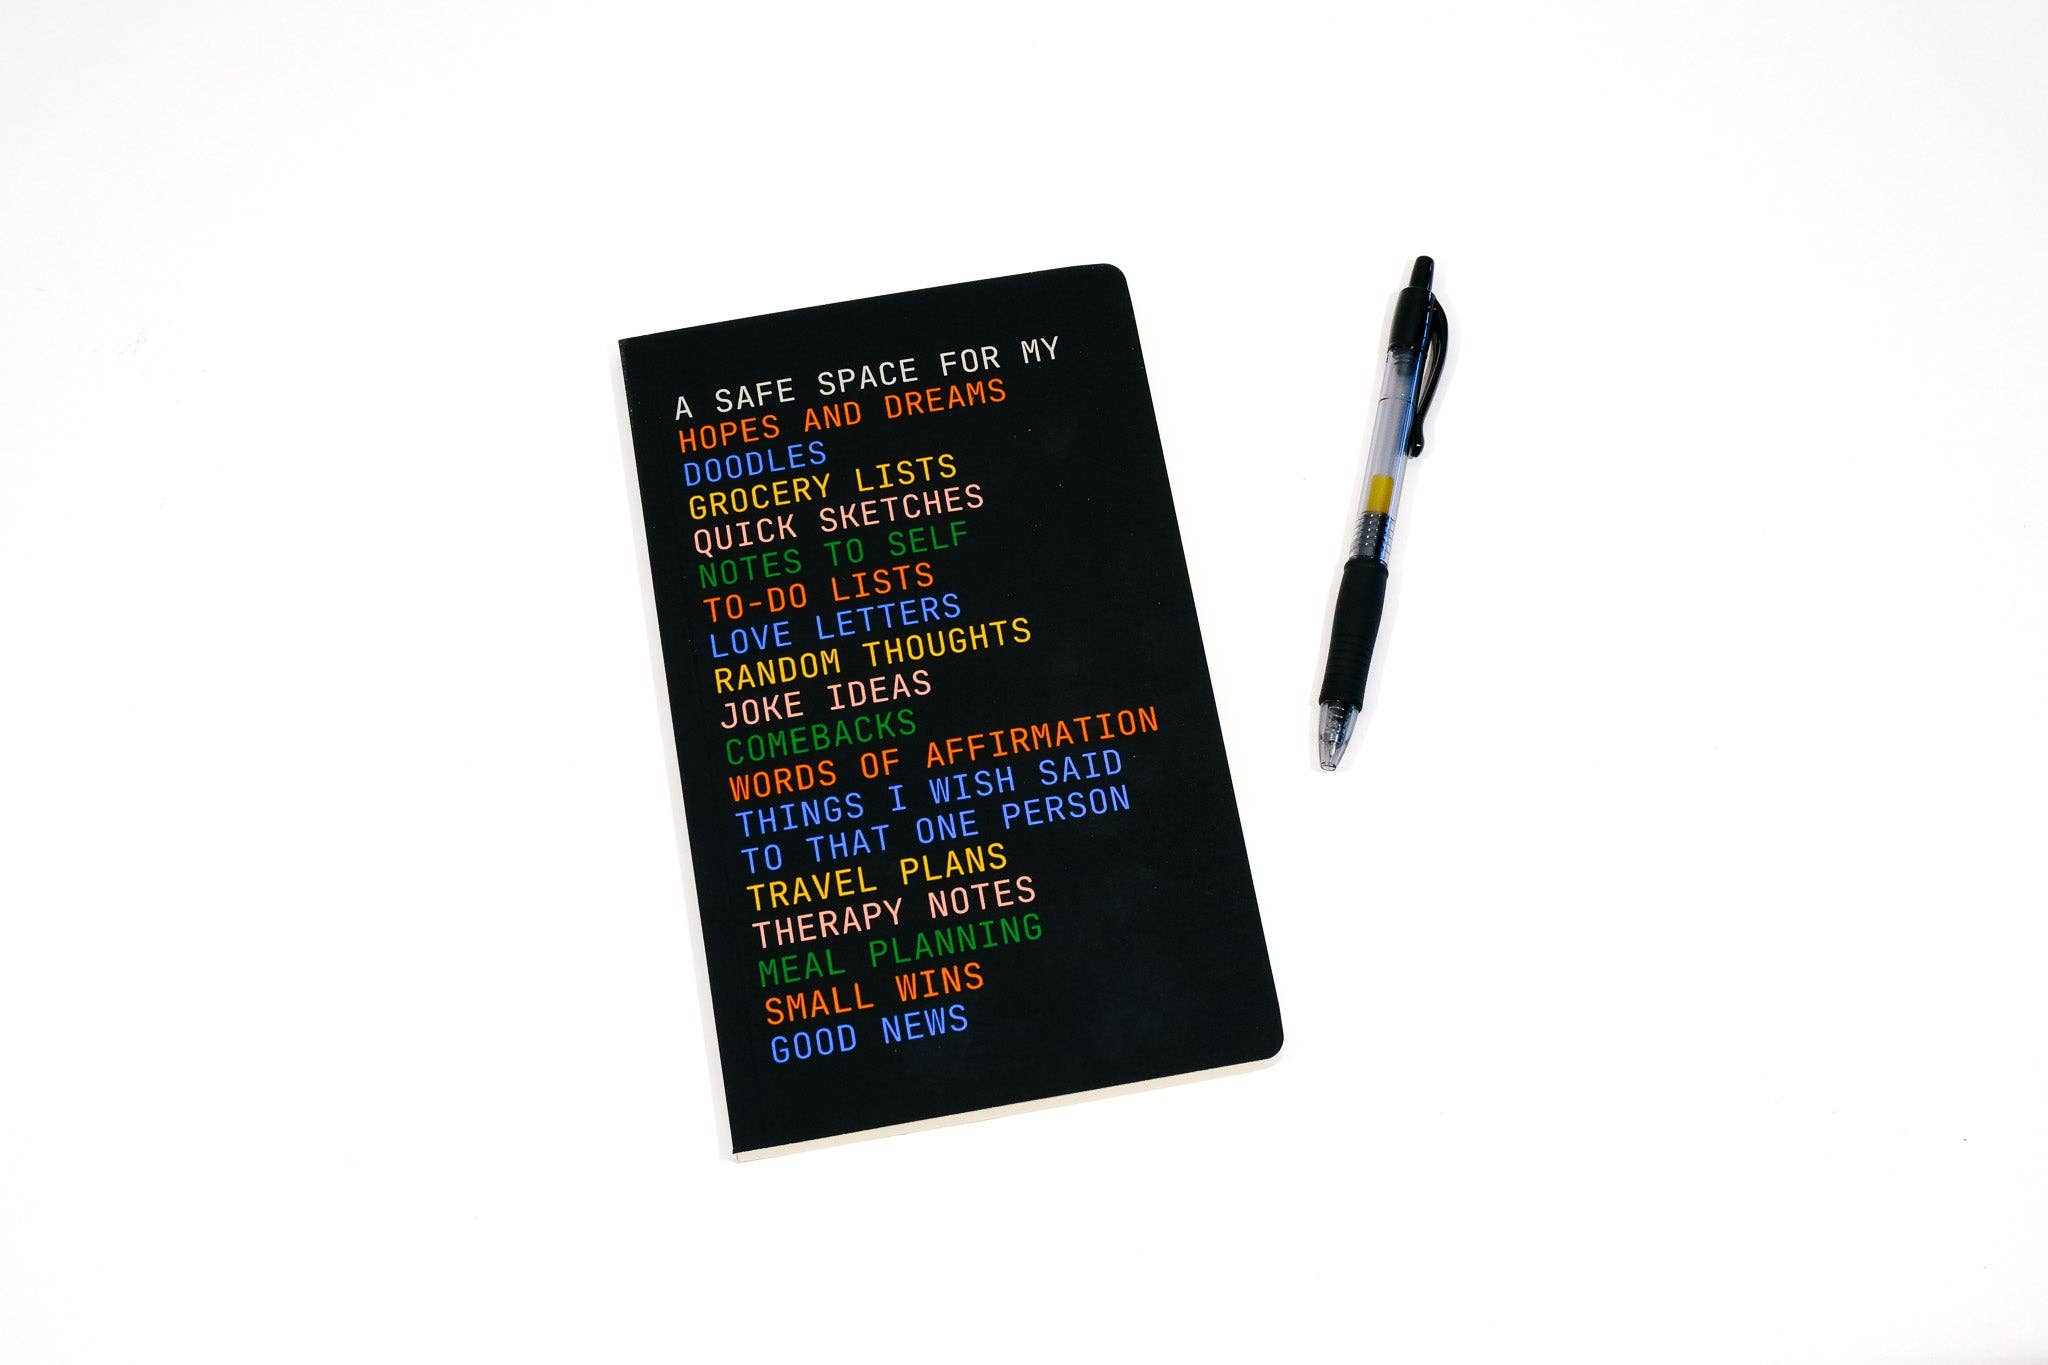 A SAFE SPACE FOR MY
HOPES AND DREAMS
DOODLES
GROCERY LISTS
QUICK SKETCHES
NOTES TO SELF
TO-DO LISTS
LOVE LETTERS
RANDOM THOUGHTS
JOKE IDEAS
COMEBACKS
WORDS OF AFFIRMATION
THINGS I WISH SAID
TO THAT ONE PERSON
TRAVEL PLANS
THERAPY NOTES
MEAL PLANNING
SMALL WINS
GOOD NEWS